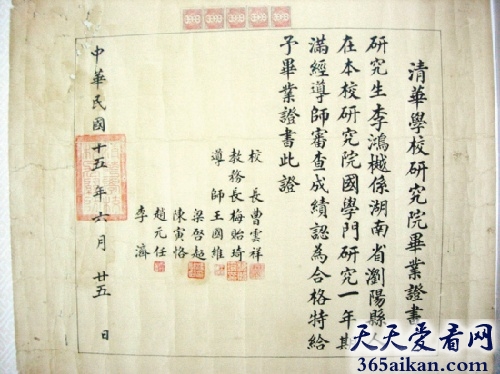 清華學校研究院畢業證書
研究生李鴻樾係湖南省瀏陽縣人
在本校研究院國學門研究一年期
滿經導師審查成績認為合格特給
予畢業證書此證
校長曹雲祥
教務長梅貽琦
導師王國維
梁啓超
陳寅恪
趙元任
李濟
中華民國十五年六月廿五日
天天爱看网
365aikan.com